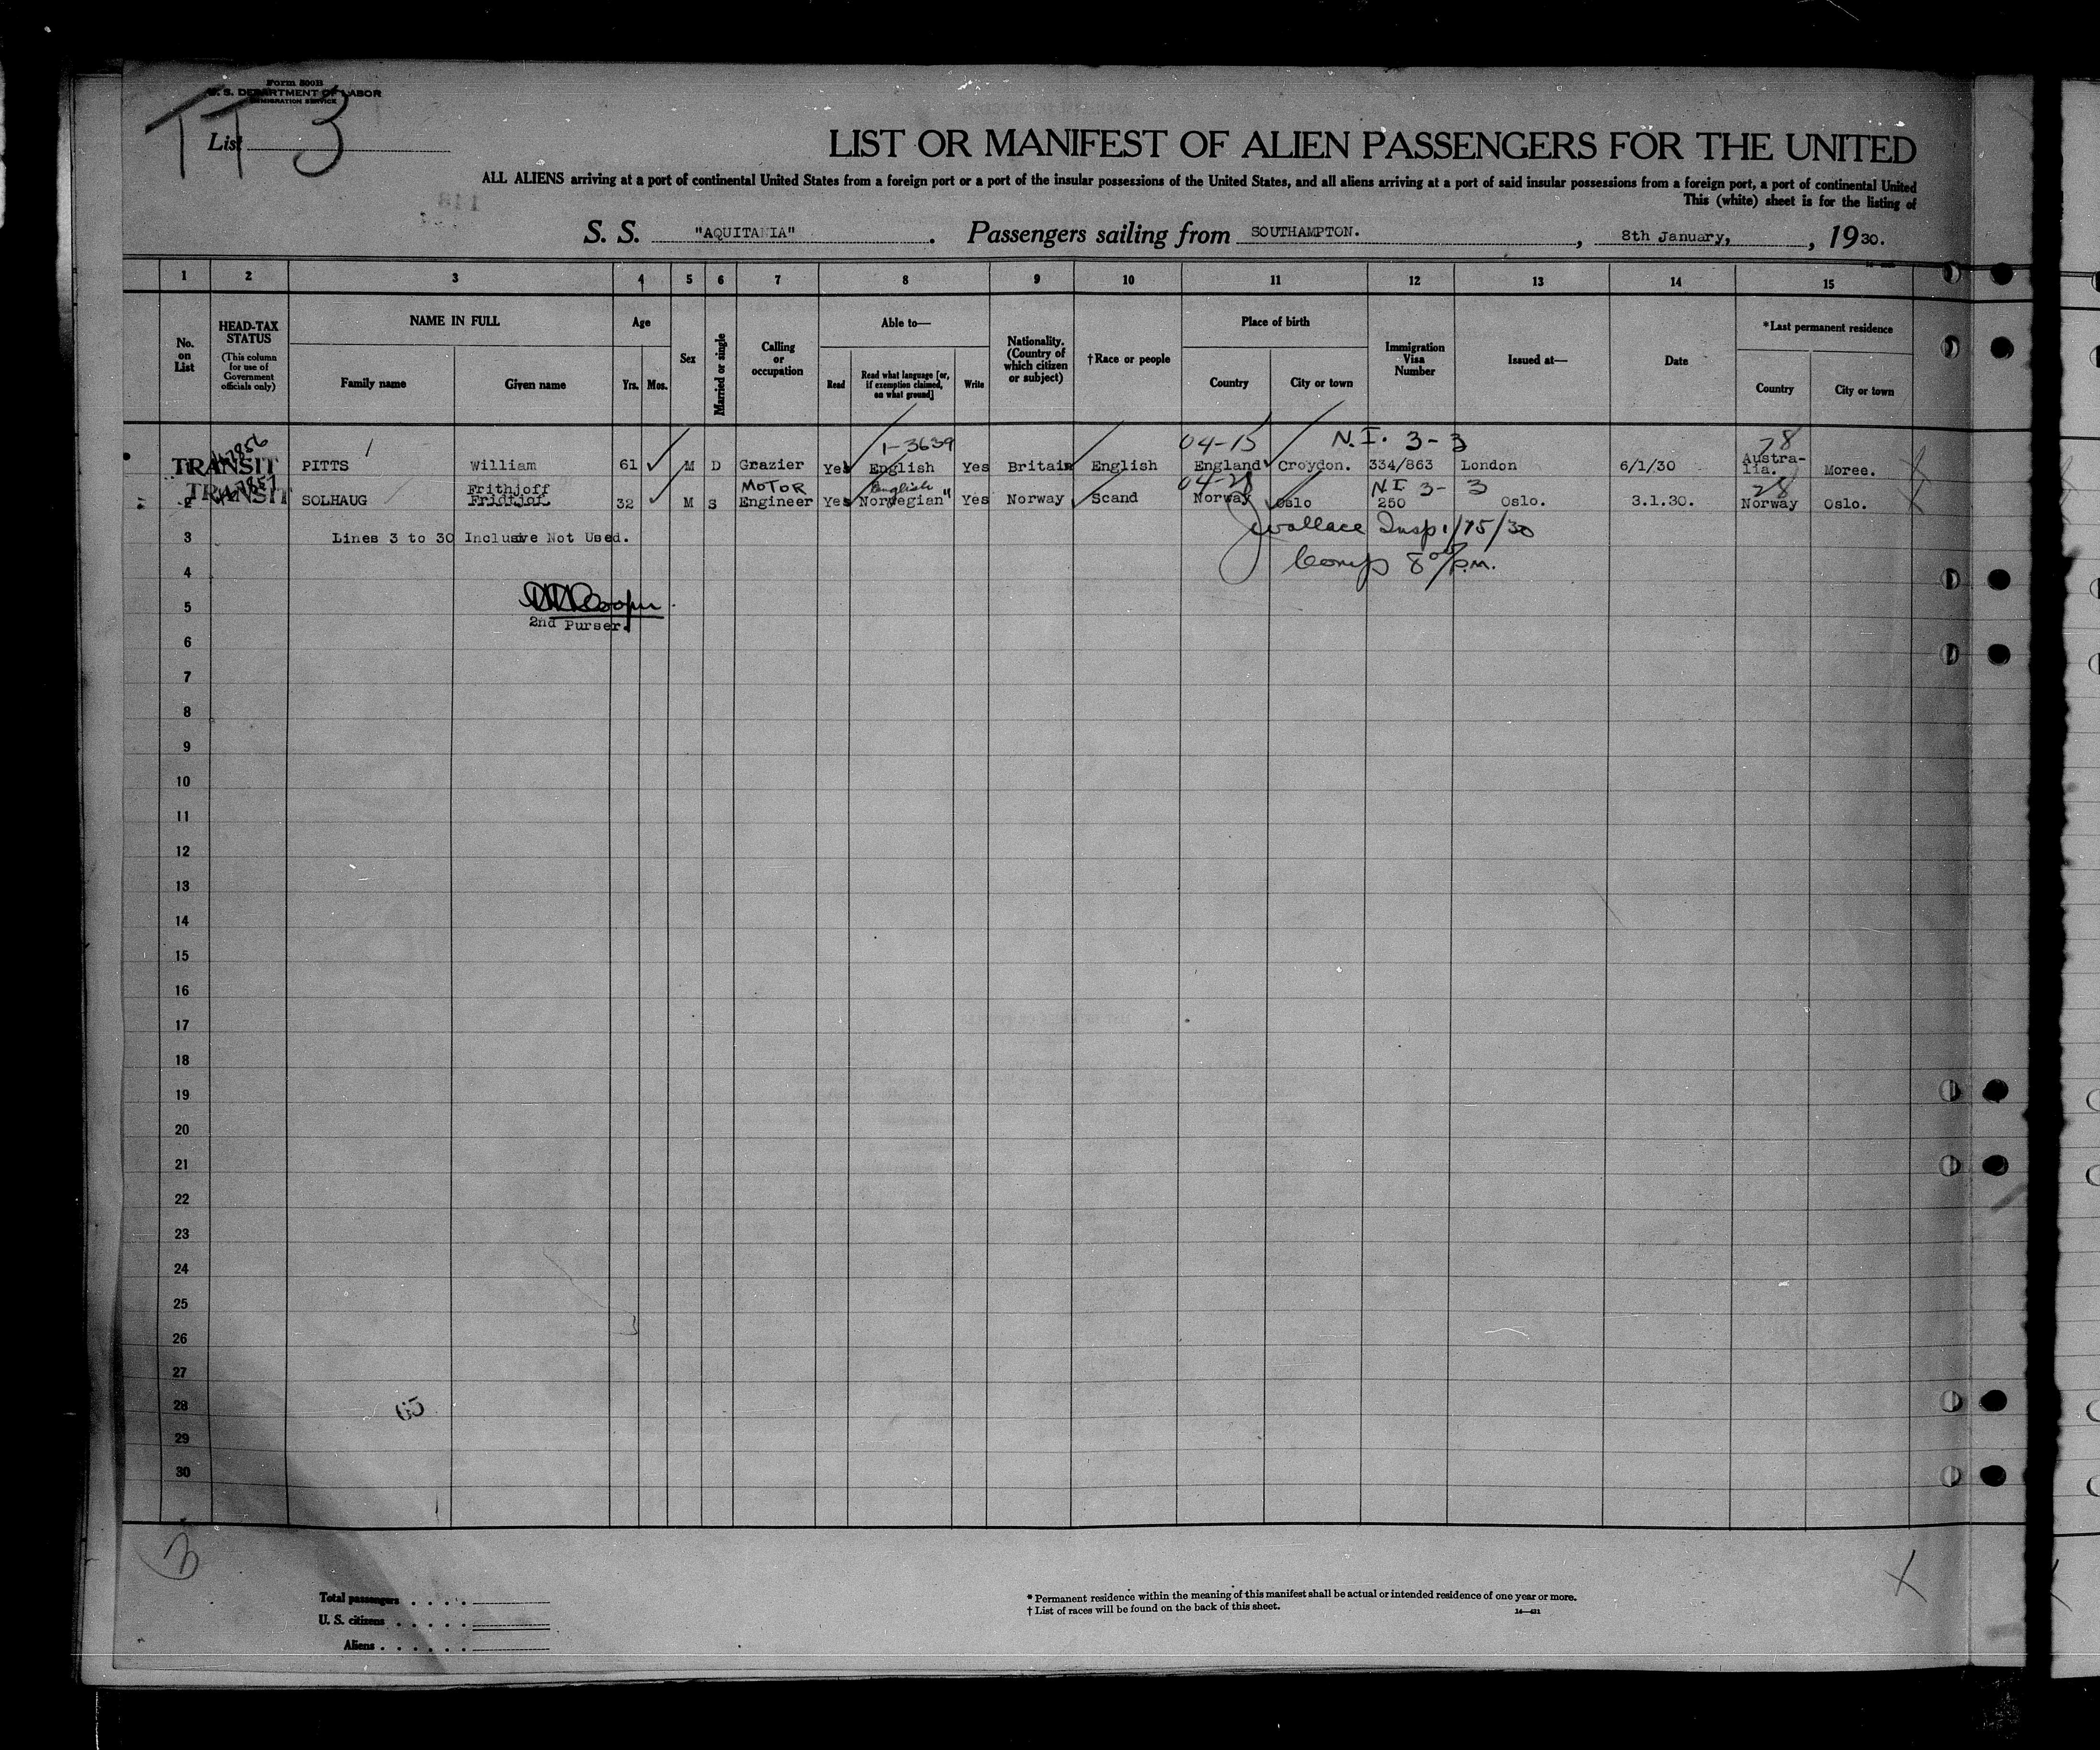 Form 500B
U. S. DEPARTMENT OF LABOR
IMMIGRATION SERVICE
TT 3
List
LIST OR MANIFEST OF ALIEN PASSENGERS FOR THE UNITED
ALL ALIENS arriving at a port of continental United States from a foreign port or a port of the insular possessions of the United States, and all aliens arriving at a port of said insular possessions from a foreign port, a port of continental United
This (white) sheet is for the listing of
S. S. "AQUITANIA". Passengers sailing from SOUTHAMPTON., 8th January, , 1930.
1 2 3 4 5 6 7 8 9 10 11 12 13 14 15
No. on List
HEAD-TAX STATUS (This column for use of Government officials only)
NAME IN FULL
Family name Given name
Age
Yrs. Mos.
Sex
Married or single
Calling or occupation
Able to—
Read Read what language [or, if exemption claimed, on what ground] Write
Nationality. (Country of which citizen or subject)
†Race or people
Place of birth
Country City or town
Immigration Visa Number
Issued at—
Date
*Last permanent residence
Country City or town
1-3639 04-15 N.I. 3-3 28
TRANSIT PITTS William 61 M D Grazier Yes English Yes Britain English England Croydon. 334/863 London 6/1/30 Australia. Moree.
Frithjoff MOTOR English 04-28 NI 3-3 28
TRANSIT 2 SOLHAUG Fridtjof 32 M S Engineer Yes Norwegian" Yes Norway Scand Norway Oslo 250 Oslo. 3.1.30. Norway Oslo.
Wallace Insp 1/15/30
3 Lines 3 to 30 Inclusive Not Used.
Comp 8 00/P.M.
4
Cooper
5
2nd Purser.
6
7
8
9
10
11
12
13
14
15
16
17
18
19
20
21
22
23
24
25
26
27
28
29
30
3
Total passengers . . . .
U. S. citizens . . . . .
Aliens . . . . . .
* Permanent residence within the meaning of this manifest shall be actual or intended residence of one year or more.
† List of races will be found on the back of this sheet.